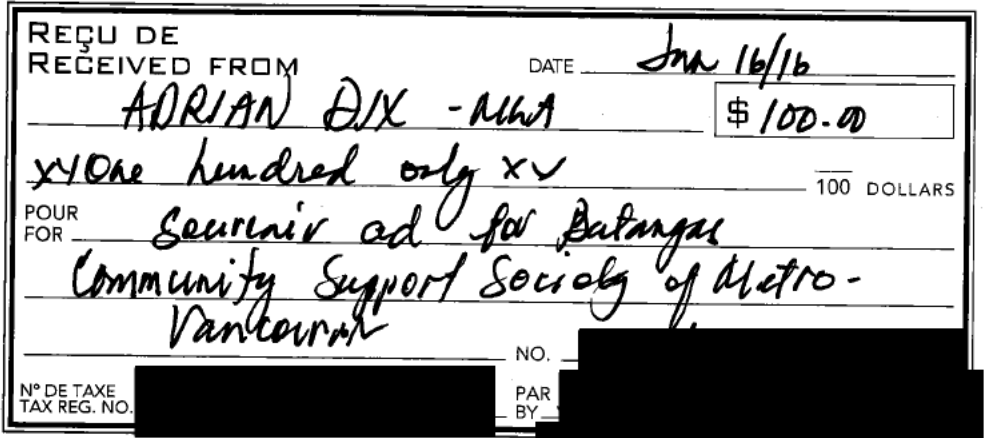 REÇU DE
RECEIVED FROM
DATE Jan 16/16
ADRIAN DIX - MLA
$ 100.00
xx One hundred only xx
100 DOLLARS
POUR
FOR
Souvenir ad for Batangas
Community Support Society of Metro-
Vancouver
NO.
N° DE TAXE
TAX REG. NO.
PAR
BY